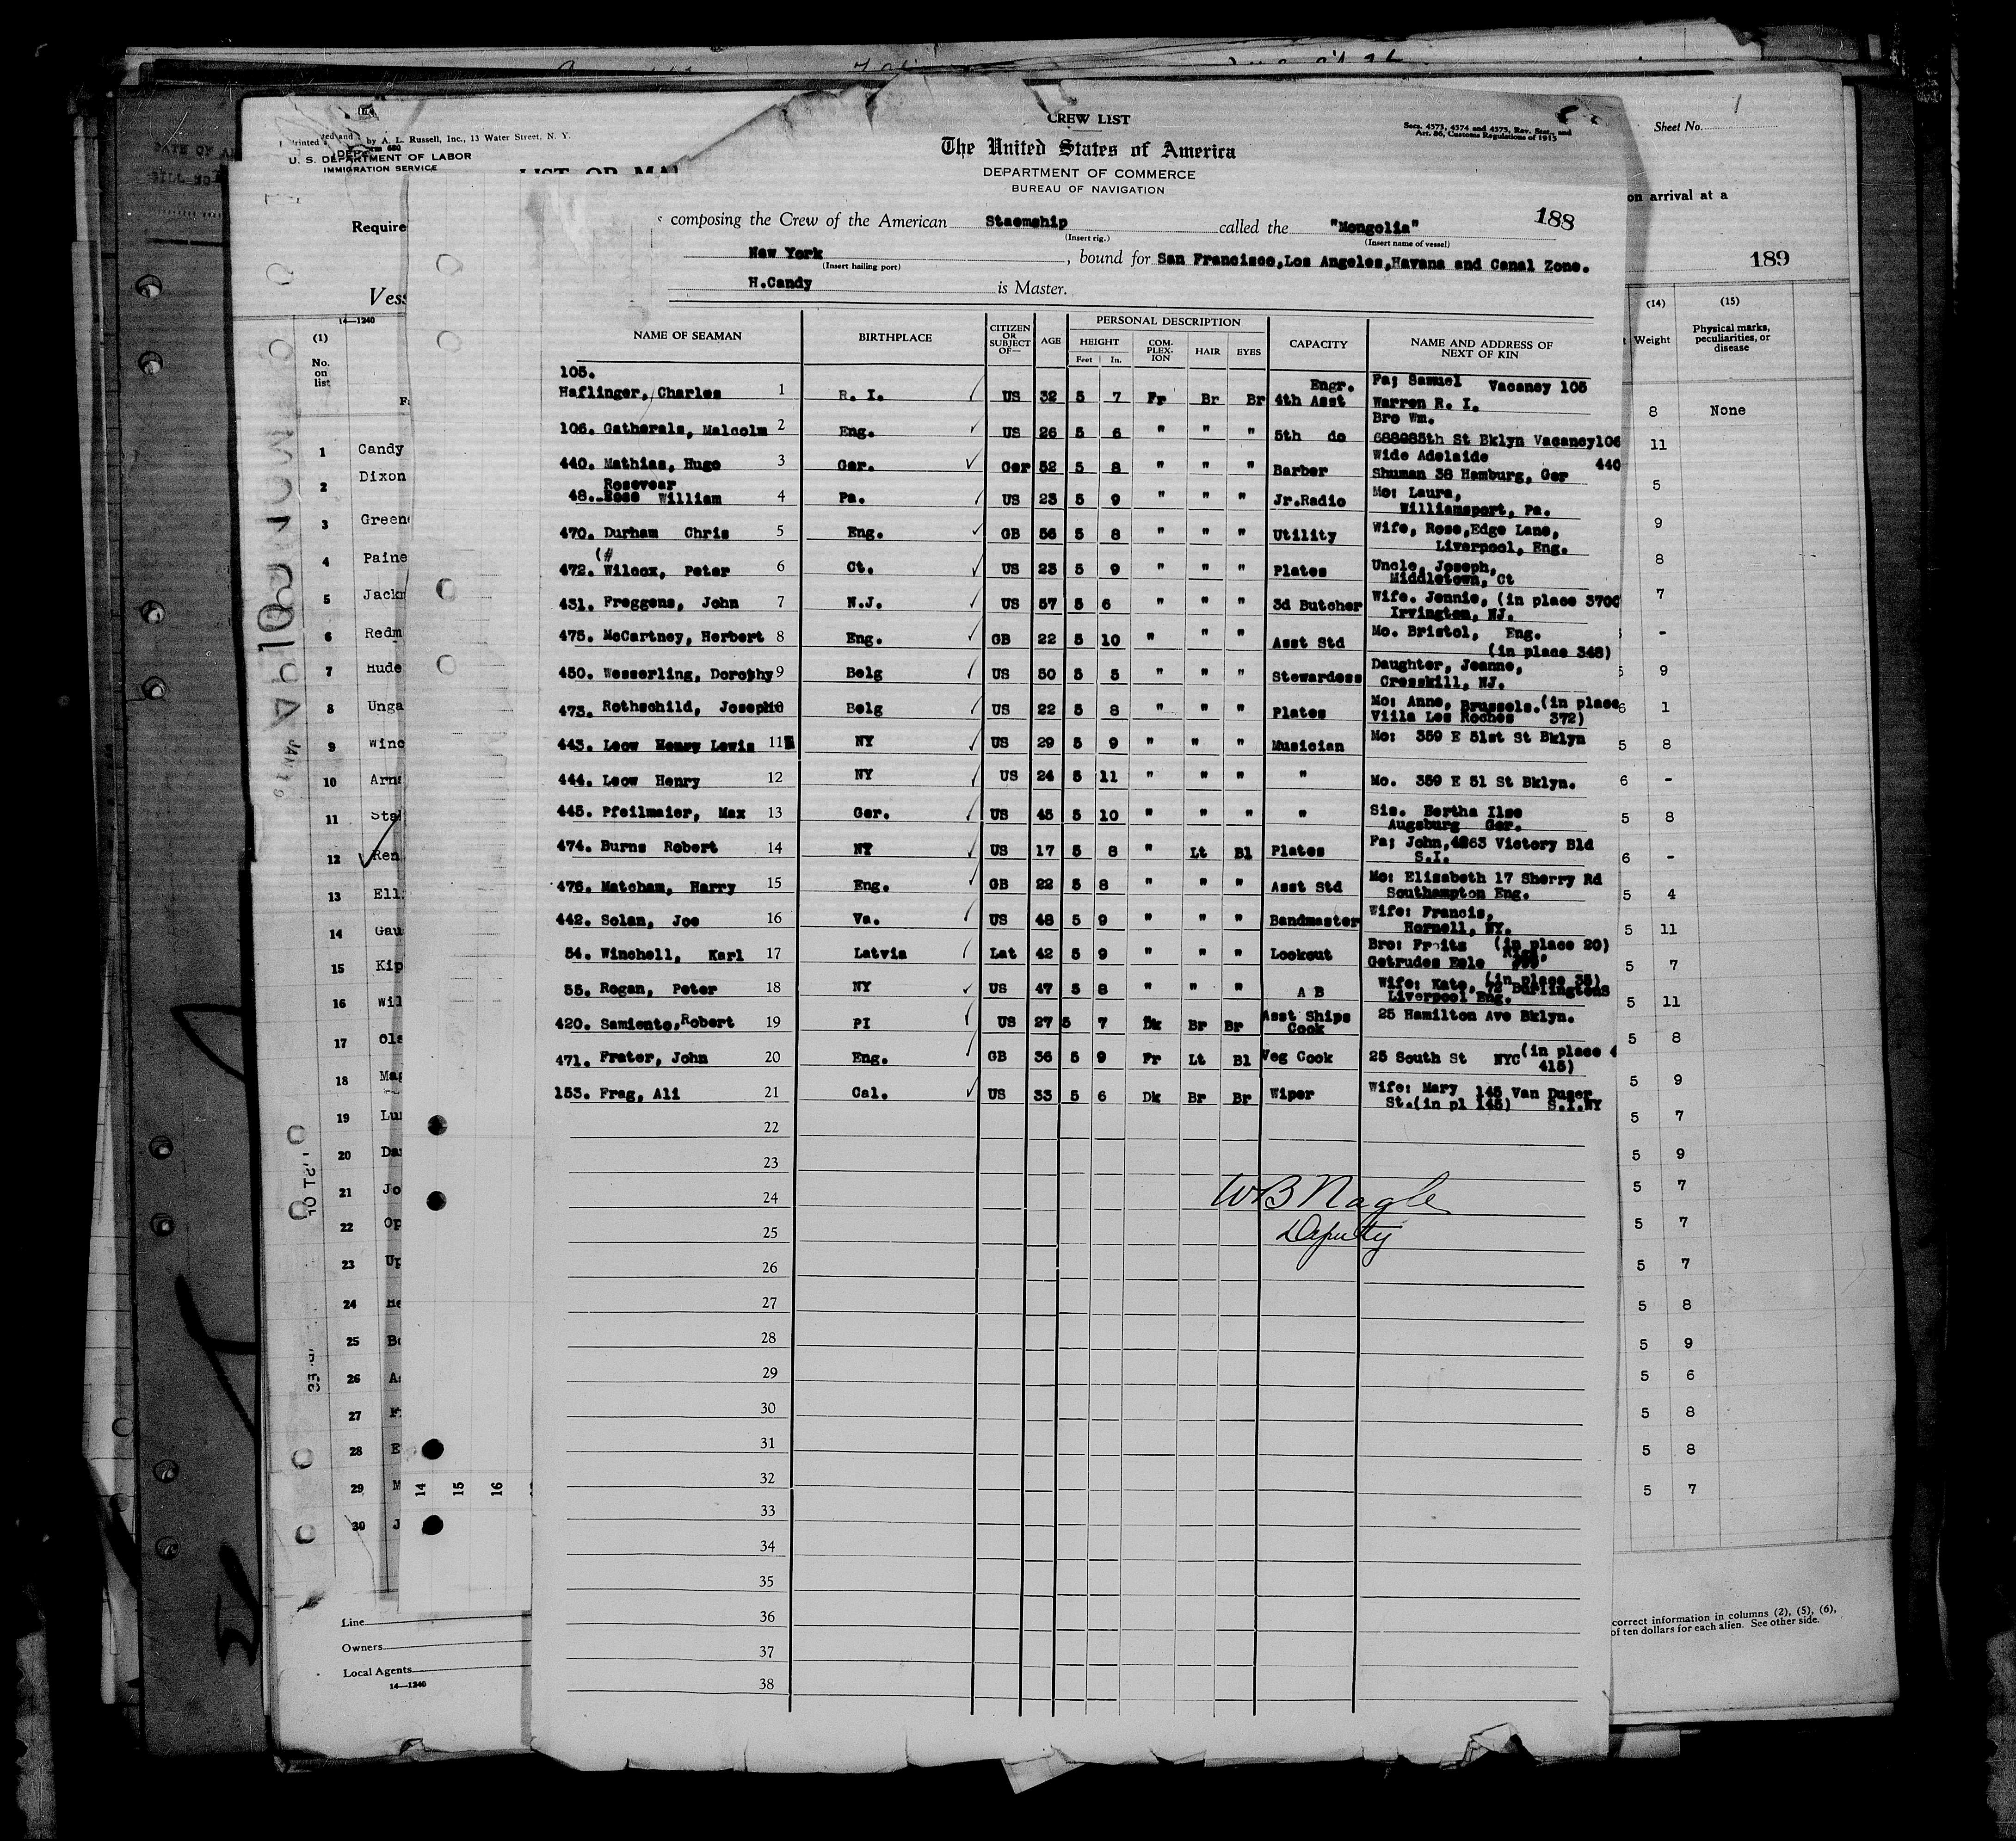 CREW LIST
The United States of America
DEPARTMENT OF COMMERCE
BUREAU OF NAVIGATION
Secs. 4573, 4574 and 4575, Rev. Stat., and
Art. 86, Customs Regulations of 1915
188
composing the Crew of the American Staemship called the "Mongolia"
(Insert rig.) (Insert name of vessel)
New York, bound for San Francisco,Los Angeles,Havana and Canal Zone.
(Insert hailing port)
H.Candy is Master.
NAME OF SEAMAN BIRTHPLACE CITIZEN OR SUBJECT OF— AGE PERSONAL DESCRIPTION CAPACITY NAME AND ADDRESS OF NEXT OF KIN
HEIGHT COM-PLEX-ION HAIR EYES
Feet In.
105.
Haflinger, Charles 1 R. I. US 32 5 7 Fr Br Br Engr. 4th Asst Pa; Samuel Vacancy 105 Warren R. I.
106. Gatherals, Malcolm 2 Eng. US 26 5 6 " " " 5th do Bro Wm. St Bklyn Vacancy106
440. Mathias, Hugo 3 Ger. Ger 52 5 8 " " " Barber Wide Adelaide 440 Shuman 38 Hamburg, Ger
Rosevear
48. Rose William 4 Pa. US 23 5 9 " " " Jr.Radio Mo: Laura, Williamsport, Pa.
470. Durham Chris 5 Eng. GB 56 5 8 " " " Utility Wife, Rose,Edge Lane, Liverpool, Eng.
(#
472. Wilcox, Peter 6 Ct. US 23 5 9 " " " Plates Uncle, Joseph, Middletown, Ct
431. Freggens, John 7 N.J. US 57 5 6 " " " 3d Butcher Wife. Jennie, (in place 370 Irvington, NJ.
475. McCartney, Herbert 8 Eng. GB 22 5 10 " " " Asst Std Mo. Bristol, Eng. (in place 348)
450. Wesserling, Dorothy 9 Belg US 50 5 5 " " " Stewardess Daughter, Jeanne, Cresskill, NJ.
473. Rothschild, Joseph 10 Belg US 22 5 8 " " " Plates Mo: Anne, Brussels.(in place Villa Les Roches 372)
443. Leow Henry Lewis 11 NY US 29 5 9 " " " Musician Mo: 359 E 51st St Bklyn
444. Leow Henry 12 NY US 24 5 11 " " " " Mo. 359 E 51 St Bklyn.
445. Pfeilmaier, Max 13 Ger. US 45 5 10 " " " " Sis. Bertha Ilse Augsburg Ger.
474. Burns Robert 14 NY US 17 5 8 " Lt Bl Plates Pa; John,4263 Victory Bld S.I.
476. Matcham, Harry 15 Eng. GB 22 5 8 " " " Asst Std Mo: Elizabeth 17 Sherry Rd Southampton Eng.
442. Solan, Joe 16 Va. US 48 5 9 " " " Bandmaster Wife: Francis, Hornell, NY.
54. Winchell, Karl 17 Latvia Lat 42 5 9 " " " Lookout Bro: (in place 20) Getrudes Eele Riga,
55. Regan, Peter 18 NY US 47 5 8 " " " A B Wife: Kate, (in place 35) 72 Liverpool Eng.
420. Samiento,Robert 19 PI US 27 5 7 Dk Br Br Asst Ships Cook 25 Hamilton Ave Bklyn.
471. Frater, John 20 Eng. GB 36 5 9 Fr Lt Bl Veg Cook 25 South St NYC (in place 4 415)
153. Frag, Ali 21 Cal. US 33 5 6 Dk Br Br Wiper Wife: Mary 145 Van Duser St.(in pl 145) S.I.NY
22
23
24
25
26
27
28
29
30
31
32
33
34
35
36
37
38
W B Nagle
Deputy
by A. L. Russell, Inc., 13 Water Street, N. Y.
U. S. DEPARTMENT OF LABOR
IMMIGRATION SERVICE
Require
Vess
14—1240
(1)
No. on list
1 Candy
2 Dixon
3 Green
4 Paine
5 Jackr
6 Redm
7 Hude
8 Unga
9 Winc
10 Arns
11 Sta
12 Ren
13 Ell
14 Gau
15 Kip
16 Wil
17 Ola
18 Mag
19 Lun
20 Da
21 Jo
22 Op
23 Up
24 He
25 Bo
26 A
27 F
28 E
29 M
30 J
14 15 16
Line
Owners
Local Agents
14—1240
Sheet No. 1
on arrival at a
189
(14) (15)
Weight Physical marks, peculiarities, or disease
8 None
11
5
9
8
7
-
9
6 1
5 8
6 -
5 8
6 -
5 4
5 11
5 7
5 11
5 8
5 9
5 7
5 9
5 7
5 7
5 7
5 8
5 9
5 6
5 8
5 8
5 7
correct information in columns (2), (5), (6),
of ten dollars for each alien. See other side.